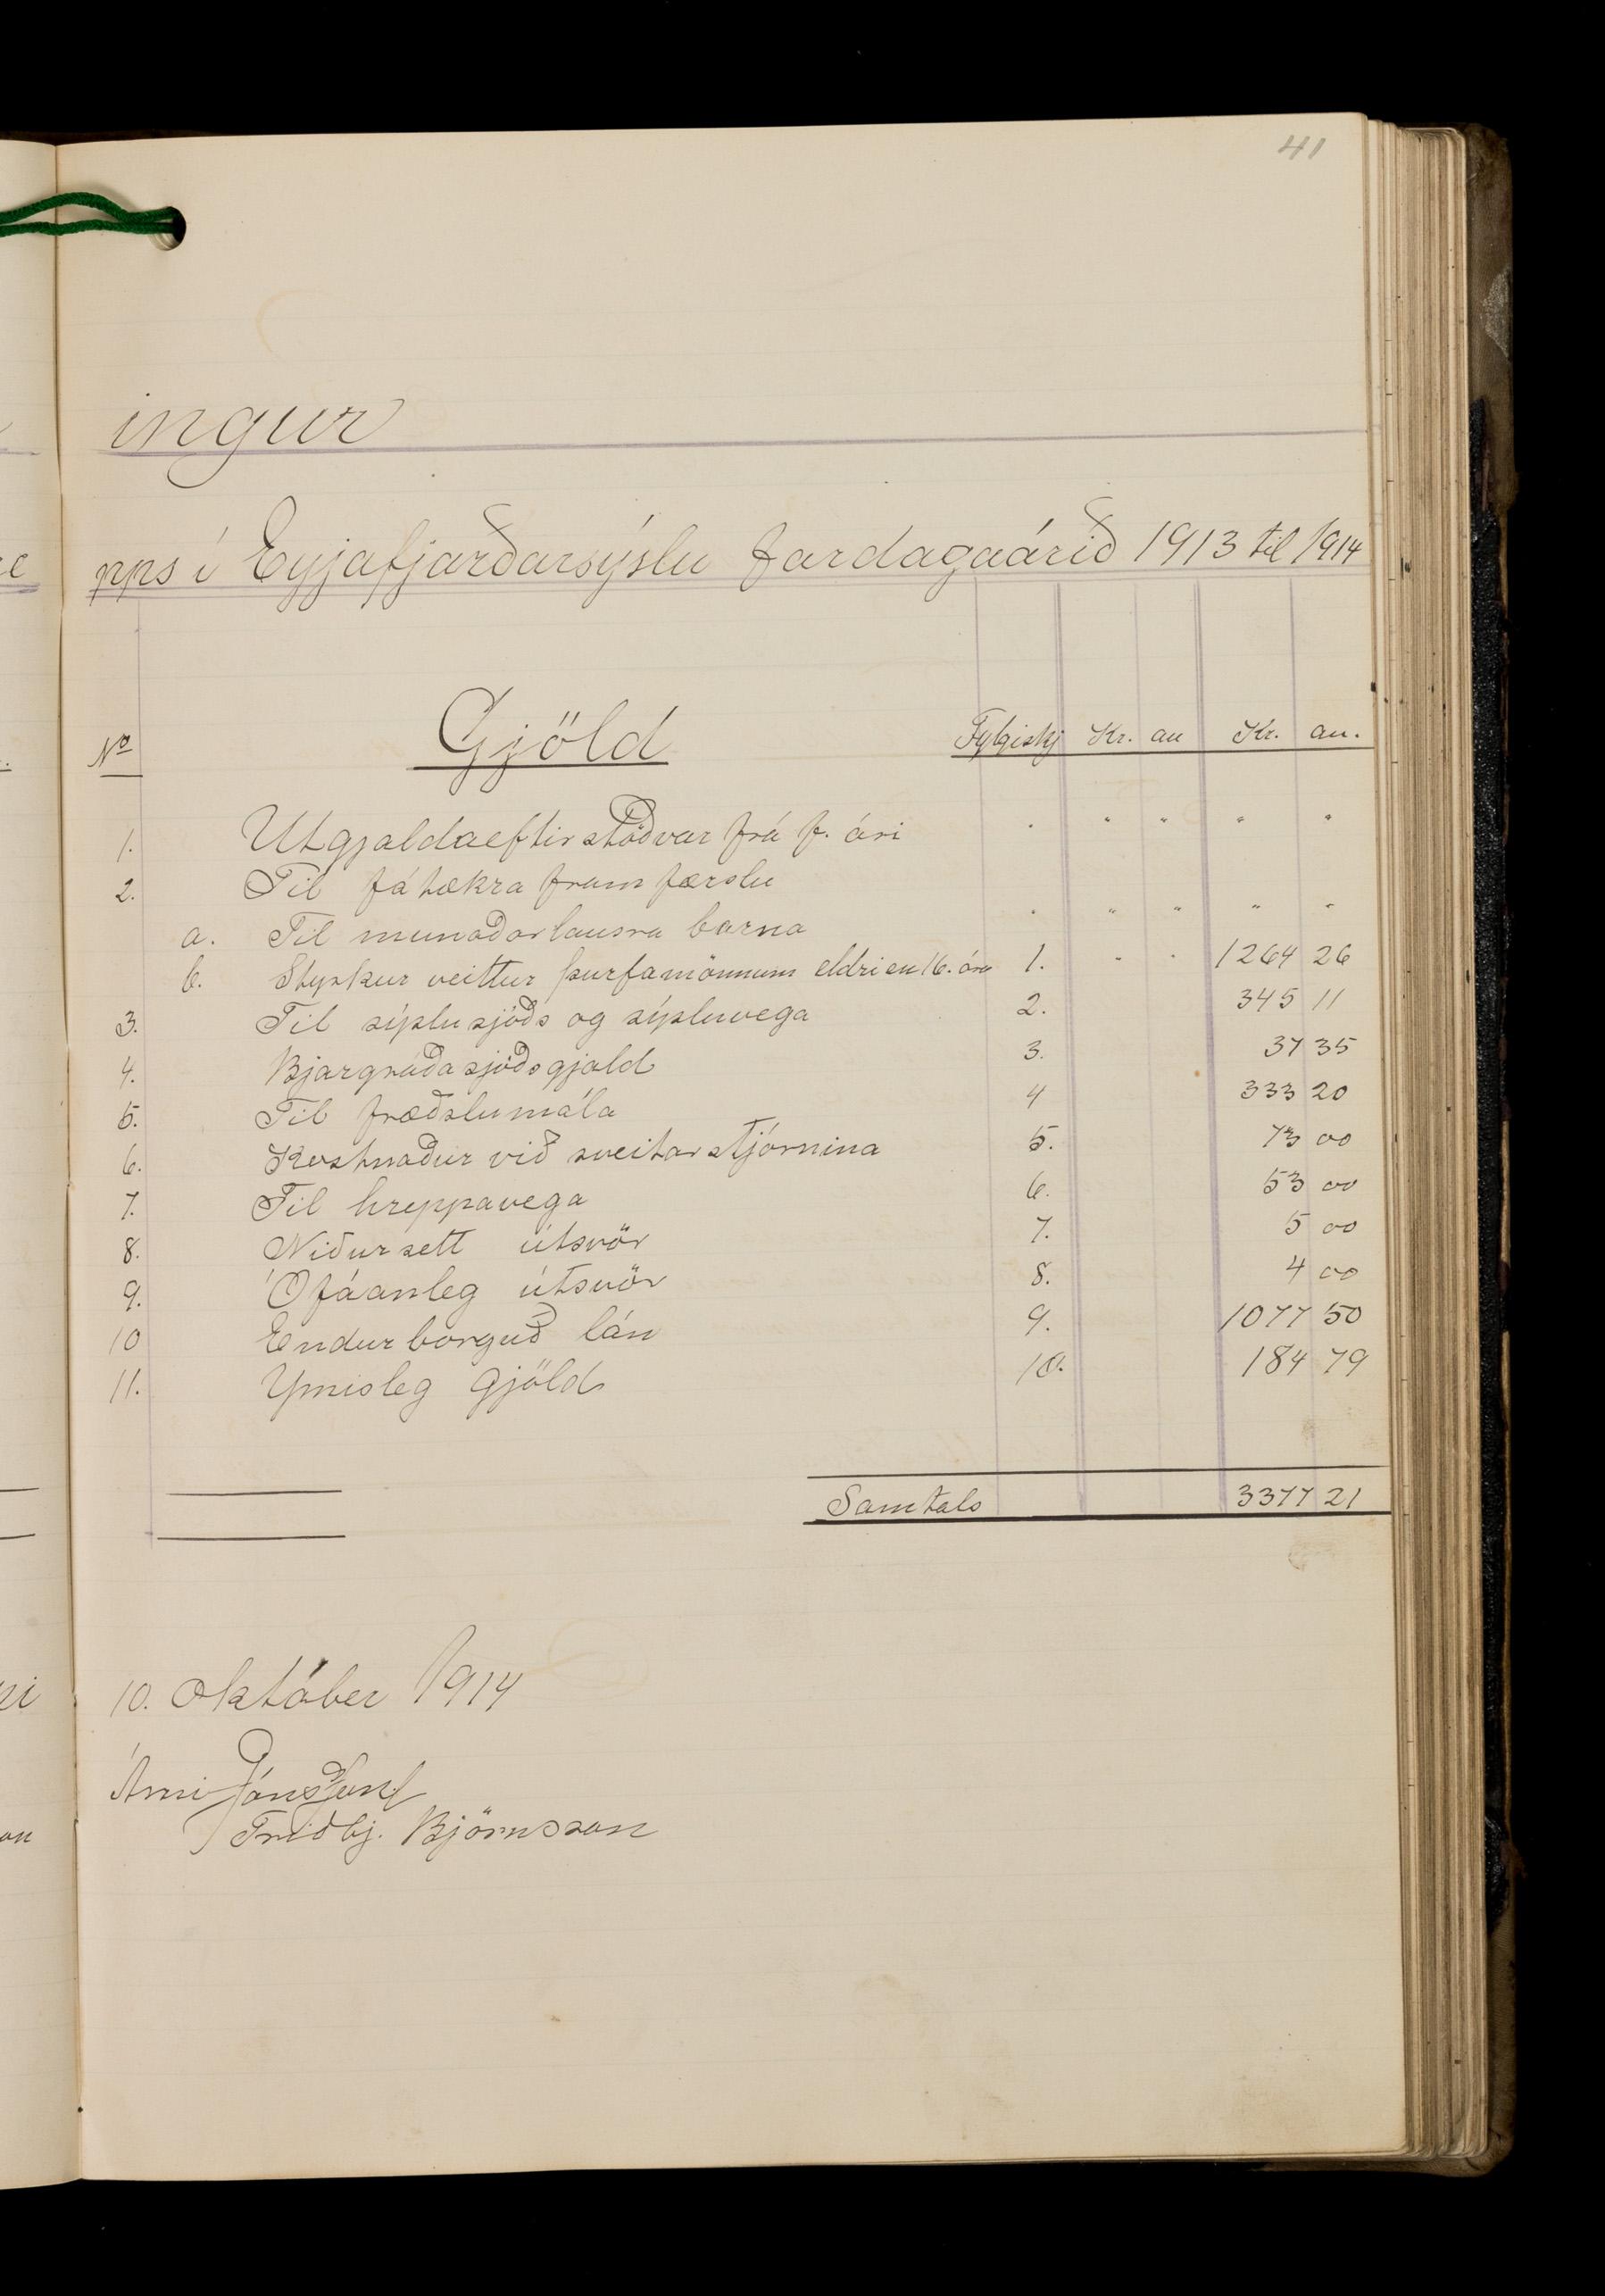 41
ingur
pps í Eyjafjarðarsýslu fardagaárið 1913 til 1914
No Gjöld Fylgiskj Kr. au Kr. au.
1. Utgjaldaeftirstöðvar frá f. ári . " " " "
2. Til fátækra framfærslu
a. Til munaðarlausra barna . " " " "
b. Styrkur veittur þurfamönnum eldri en 16. ára 1. " " 1264 26
3. Til sýslusjóðs og sýsluvega 2. 345 11
4. Bjargráðasjóðsgjald 3. 37 35
5. Til fræðslumála 4 333 20
6. Kostnaður við sveitarstjórnina 5. 73 00
7. Til hreppavega 6. 53 00
8. Niðursett útsvör 7. 5 00
9. Ófáanleg útsvör 8. 4 00
10 Endurborguð lán 9. 1077 50
11. Ymisleg Gjöld 10. 184 79
Samtals 3377 21
10. Október 1914
Árni Jónsson
Friðbj. Björnsson